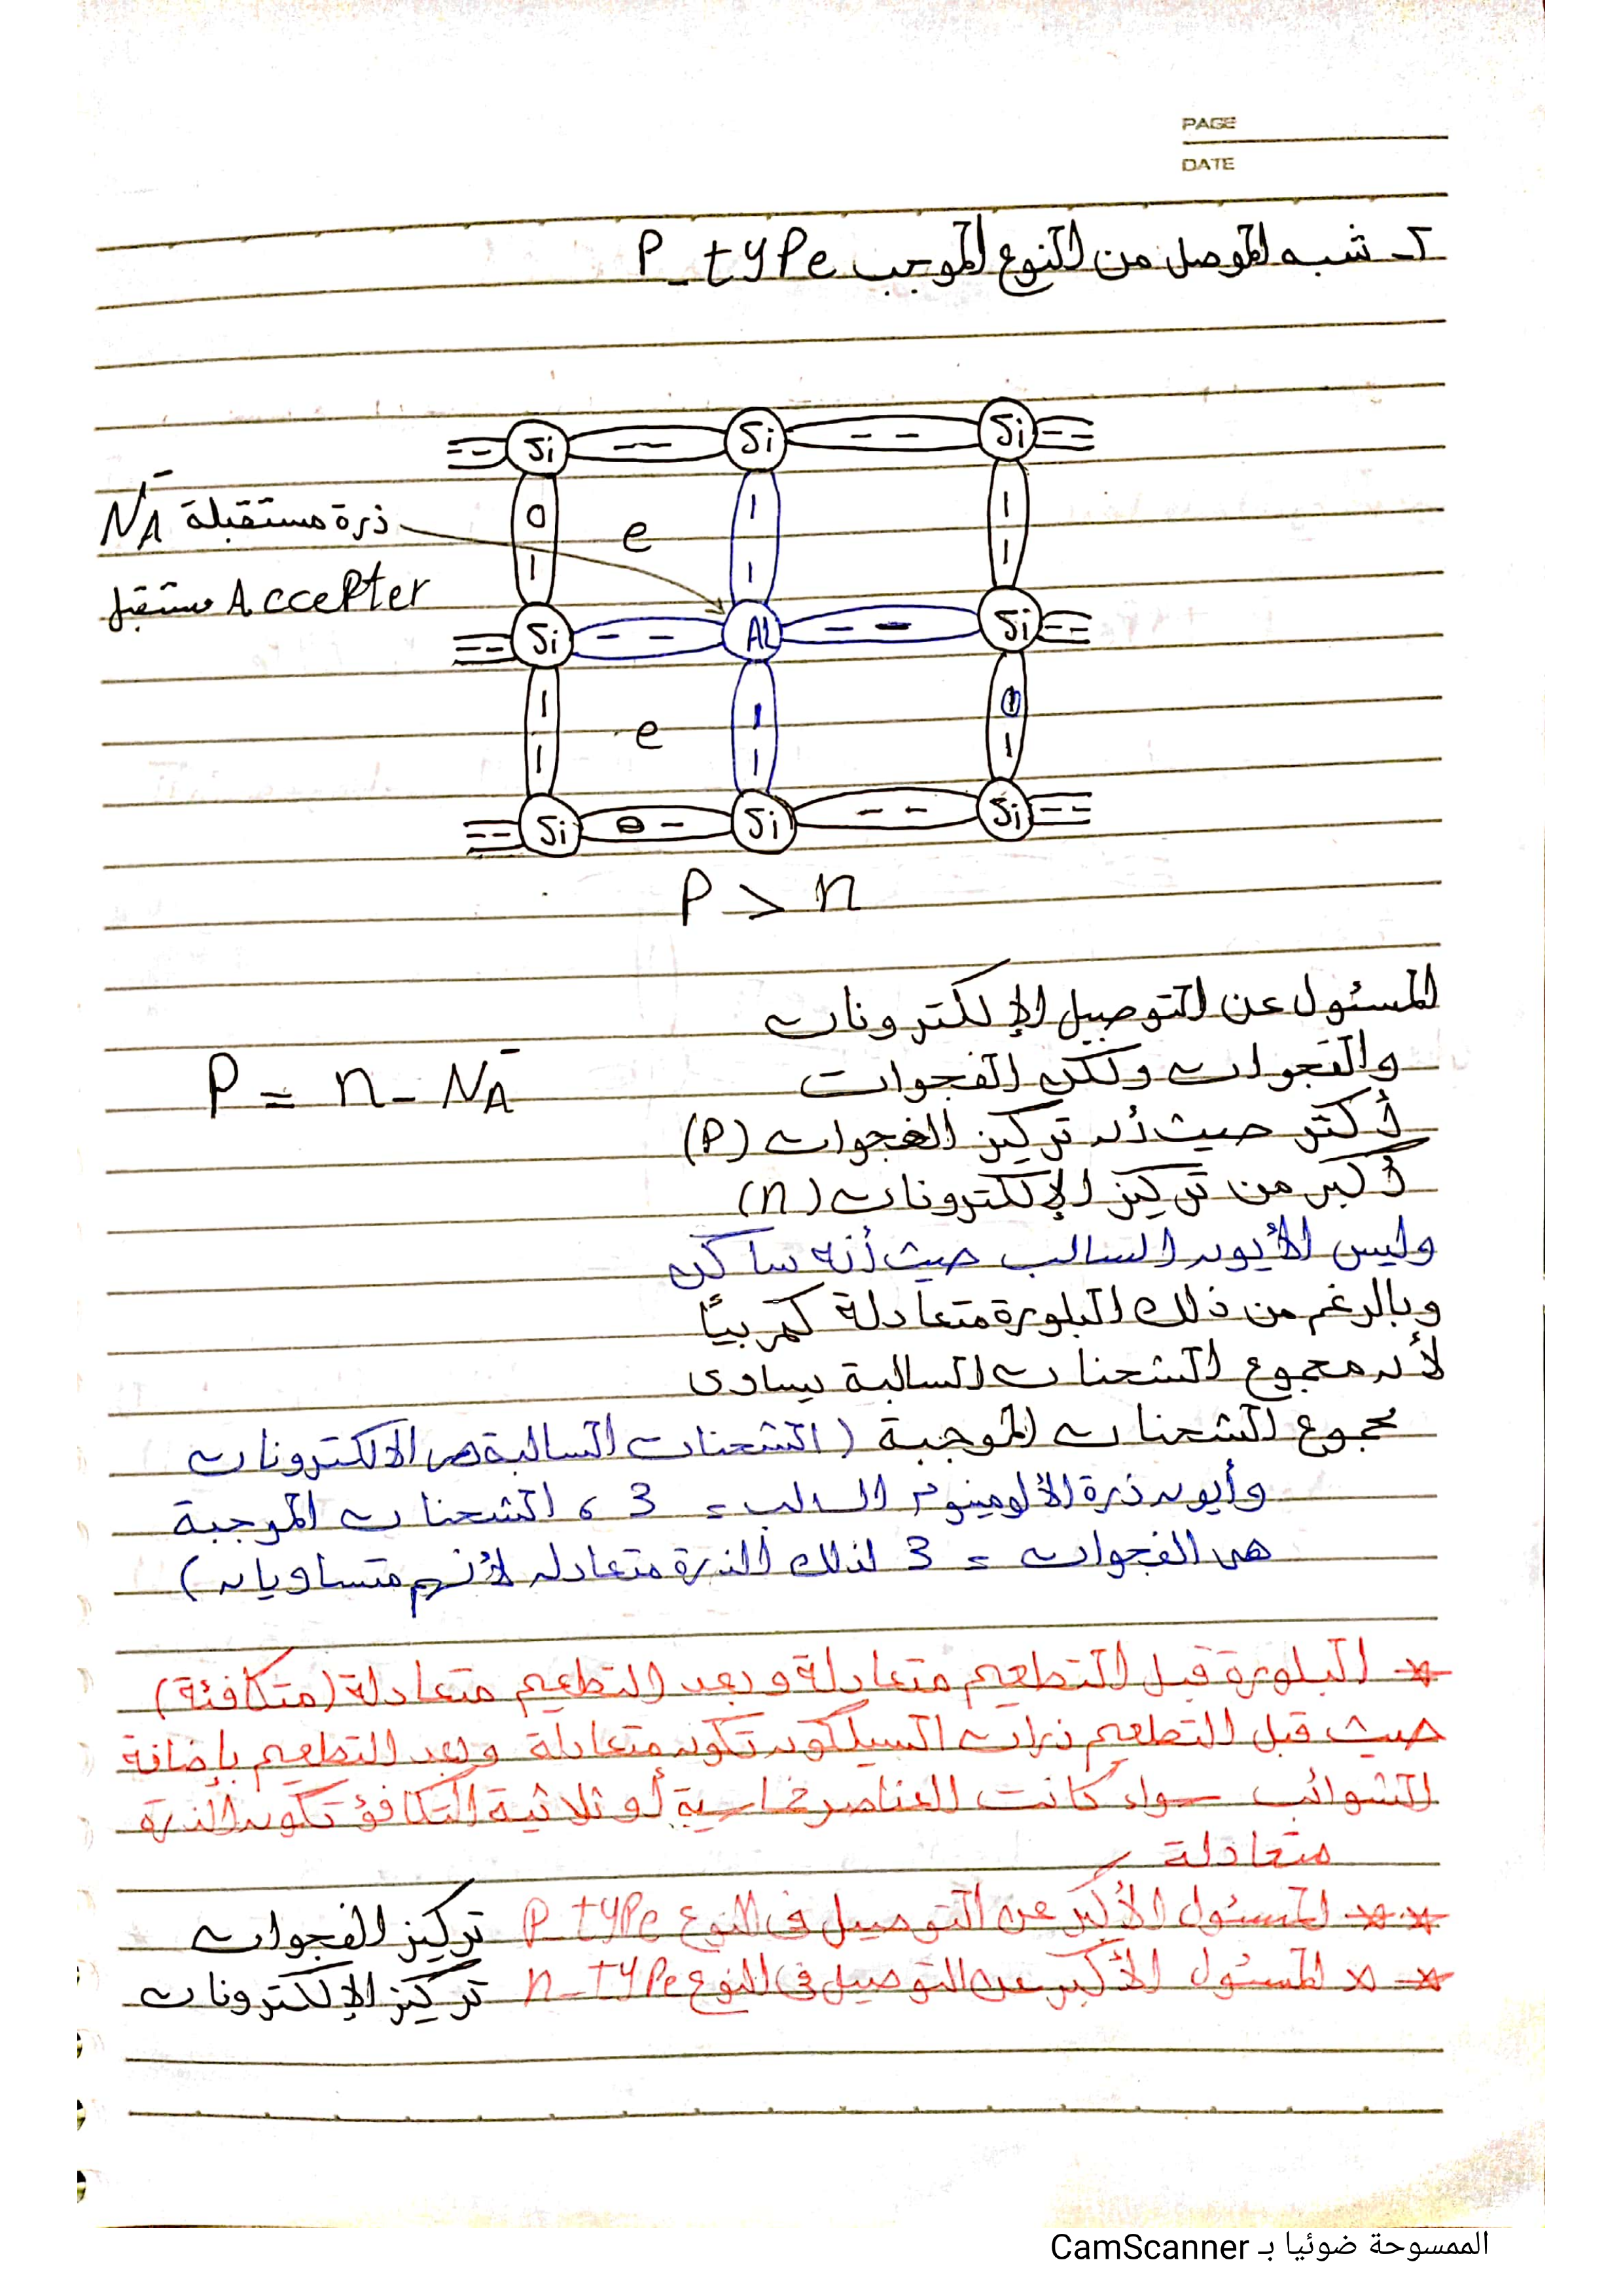 PAGE
DATE
2- شبه الموصل من النوع الموجب P_type
Si Si Si
ذرة مستقبلة NA⁻
e
مستقبل Accepter
Si Al Si
e
Si Si Si
P > n
المسئول عن التوصيل الإلكترونات
والفجوات ولكن الفجوات
P = n - NA⁻
أكثر حيث أن تركيز الفجوات (P)
أكبر من تركيز الإلكترونات (n)
وليس الأيون السالب حيث أنه ساكن
وبالرغم من ذلك البلورة متعادلة كهربيًا
لأن مجموع الشحنات السالبة يساوى
مجموع الشحنات الموجبة (الشحنات السالبة هى الالكترونات
وأيون ذرة الألومينوم السالب = 3 ، الشحنات الموجبة
هى الفجوات = 3 لذلك الذرة متعادله لأنهم متساويان)
* البلورة قبل التطعيم متعادلة وبعد التطعيم متعادلة (متكافئة)
حيث قبل التطعيم ذرات السيلكون تكون متعادلة وبعد التطعيم بإضافة
الشوائب سواء كانت العناصر خماسية أو ثلاثية التكافؤ تكون الذرة
متعادلة
** المسئول الأكبر عن التوصيل فى النوع P_type تركيز الفجوات
** المسئول الأكبر عن التوصيل فى النوع n_type تركيز الإلكترونات
الممسوحة ضوئيا بـ CamScanner